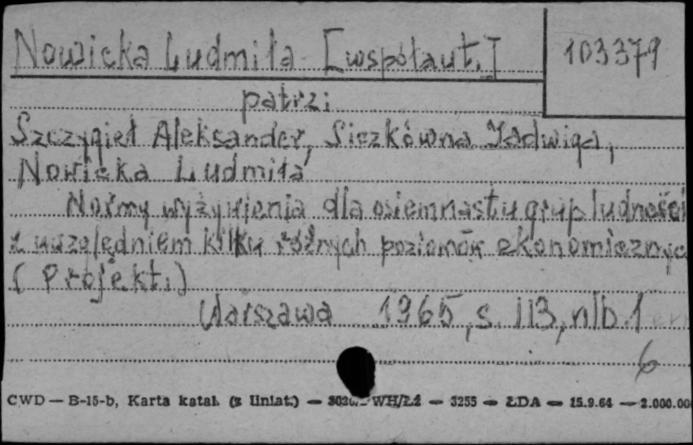 Nowicka Ludmiła [współaut.] 103379
patrz:
Szczygieł Aleksander, Siczkówna Jadwiga,
Nowicka Ludmiła
Normy wyżywienia dla osiemnastu grup ludności
z uwzględniem kilku różnych poziomów ekonomicznyc
(Projekt.)
Warszawa 1965, s. 113, nlb. 1
6
CWD — B-15-b, Karta katal. (z liniat.) — WH/Łż — 3255 — ŁDA — 15.9.64 — 2.000.00